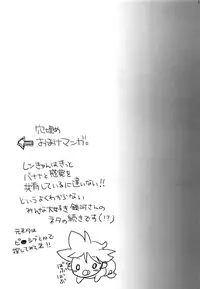 穴埋め
おまけマンガ。
レンきゅんはきっと
バナナと感覚を
共有しているに違いない!!
というよくわからない
みんな大好き銀河さんの
ネタの続きです(!?)
元ネタは
ピ●シブとかで
探してみてネ!